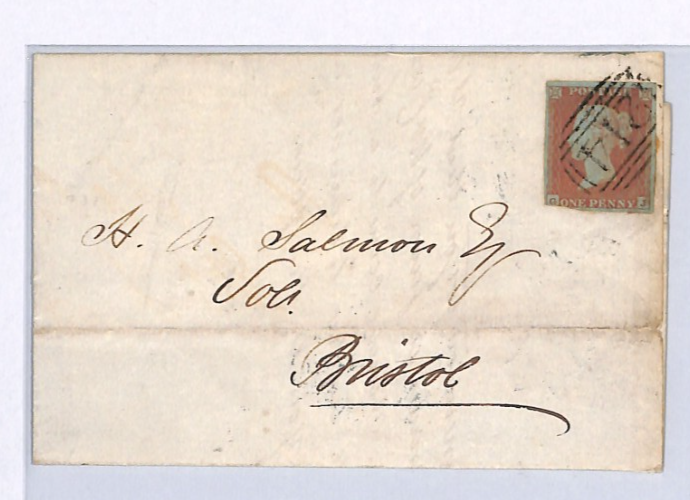 POSTAGE
ONE PENNY
H. A. Salmon Esq
Solr.
Bristol